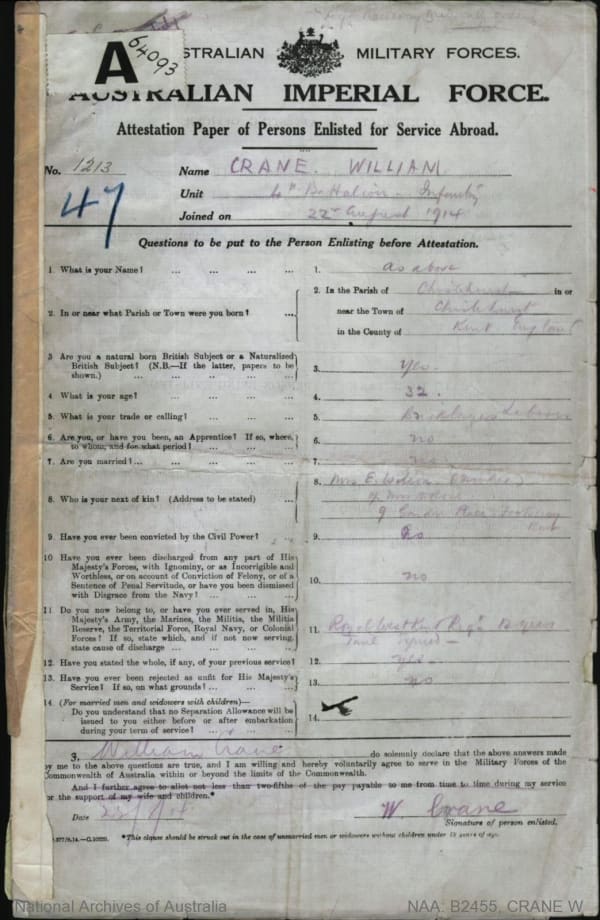 A 64093
AUSTRALIAN MILITARY FORCES.
AUSTRALIAN IMPERIAL FORCE.
Attestation Paper of Persons Enlisted for Service Abroad.
No. 1213 Name CRANE. WILLIAM
47 Unit 4th Battalion - Infantry
Joined on 22nd August 1914
Questions to be put to the Person Enlisting before Attestation.
1. What is your Name? ... ... ... ... 1. as above
2. In or near what Parish or Town were you born? ... 2. In the Parish of Chislehurst in or
near the Town of Chislehurst
in the County of Kent England
3 Are you a natural born British Subject or a Naturalized
British Subject? (N.B.—If the latter, papers to be
shown.) ... ... ... ... 3. Yes.
4. What is your age? ... ... ... ... 4. 32
5. What is your trade or calling? ... ... ... 5. Bricklayers Labourer
6. Are you, or have you been, an Apprentice? If so, where,
to whom, and for what period? ... ... ... 6. no
7. Are you married? ... ... ... ... 7. no
8. Who is your next of kin? (Address to be stated) ... 8. Mrs E.
9
9. Have you ever been convicted by the Civil Power? 9. No
10 Have you ever been discharged from any part of His
Majesty's Forces, with Ignominy, or as Incorrigible and
Worthless, or on account of Conviction of Felony, or of a
Sentence of Penal Servitude, or have you been dismissed
with Disgrace from the Navy? ... ... ... 10. no
11 Do you now belong to, or have you ever served in, His
Majesty's Army, the Marines, the Militia, the Militia
Reserve, the Territorial Force, Royal Navy, or Colonial
Forces? If so, state which, and if not now serving,
state cause of discharge ... ... ... 11. Royal West Kent Reg't 12 years
Time Expired —
12. Have you stated the whole, if any, of your previous service? 12. yes -
13. Have you ever been rejected as unfit for His Majesty's
Service? If so, on what grounds? ... ... ... 13. no
14. (For married men and widowers with children)—
Do you understand that no Separation Allowance will be
issued to you either before or after embarkation
during your term of service? ... ... ... 14.
I, William Crane do solemnly declare that the above answers made
by me to the above questions are true, and I am willing and hereby voluntarily agree to serve in the Military Forces of the
Commonwealth of Australia within or beyond the limits of the Commonwealth.
And I further agree to allot not less than two-fifths of the pay payable to me from time to time during my service
for the support of my wife and children.*
Date W Crane
Signature of person enlisted.
*This clause should be struck out in the case of unmarried men or widowers without children under 18 years of age.
National Archives of Australia NAA: B2455, CRANE W